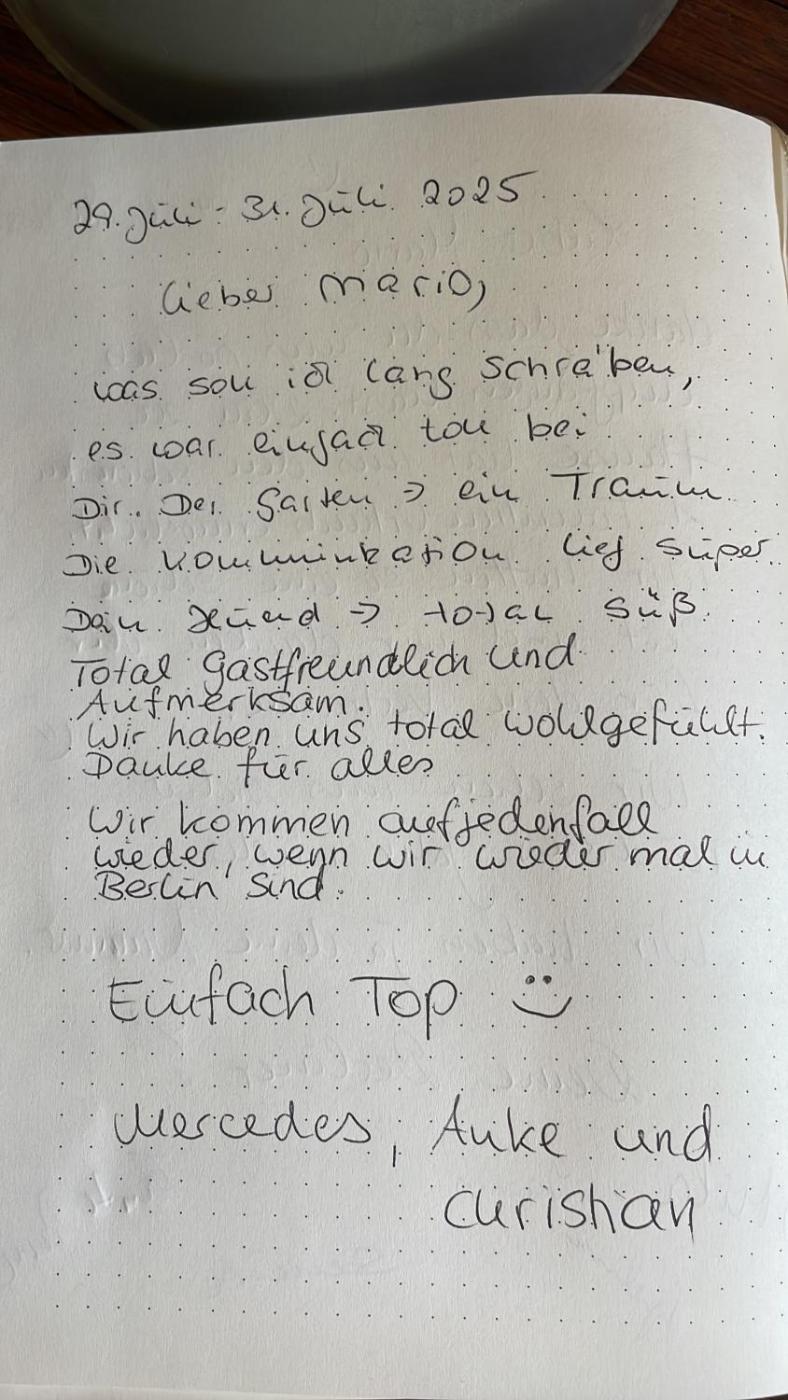 29. Juli - 31. Juli 2025
Lieber Mario,
was soll ich lang schreiben,
es war einfach toll bei
Dir. Der Garten → ein Traum
Die Kommunikation lief super.
Dein Hund → total süß.
Total Gastfreundlich und
Aufmerksam.
Wir haben uns total wohlgefühlt.
Danke für alles
Wir kommen aufjedenfall
wieder, wenn wir wieder mal in
Berlin sind.
Einfach Top :)
Mercedes, Anke und
Christian